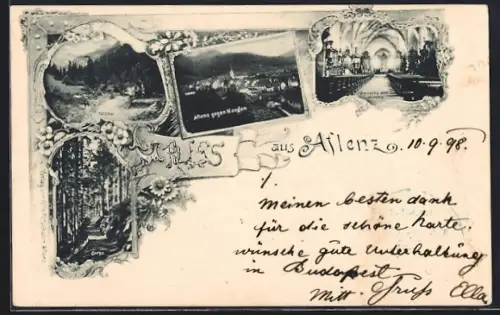 Aflenz gegen Norden
GRUSS aus Aflenz. 10.9.98.
1.
Meinen besten dank
für die schöne Karte.
wünsche gute Unterhaltung
in Budapest.
Mitt. Gruß Ella